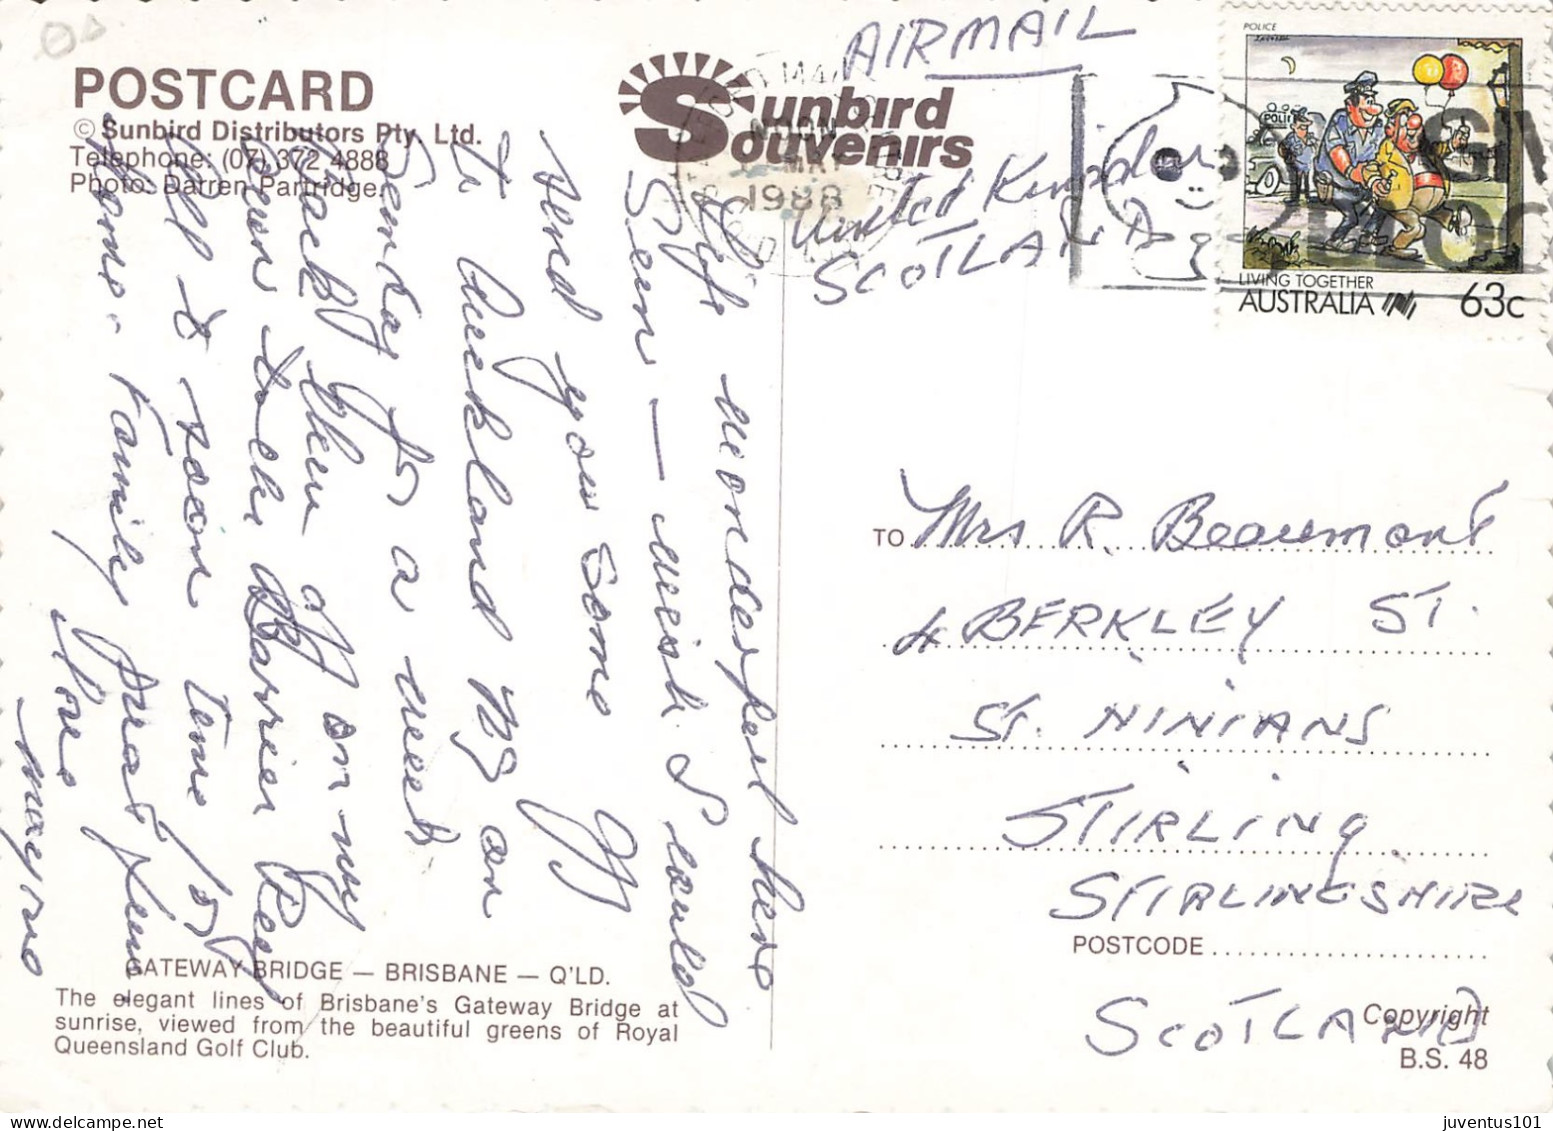 POSTCARD
© Sunbird Distributors Pty. Ltd.
Telephone: (07) 372 4888
Photo: Darren Partridge.
Sunbird
Souvenirs
AIRMAIL
United Kingdom
SCOTLAND
NOON
1988
POLICE
POLICE
LIVING TOGETHER
AUSTRALIA
63c
Life wonderful here
Sun — wish I could
send you some
to Auckland NZ on
Sunday for a week
back then off on my
own to the Barrier Reef
Will be soon time for
home. Family just fine
love
TO Mrs R. Beaumont
4 BERKLEY ST.
ST. NINIANS
STIRLING
STIRLINGSHIRE
POSTCODE
SCOTLAND
Copyright
B.S. 48
GATEWAY BRIDGE — BRISBANE — Q'LD.
The elegant lines of Brisbane's Gateway Bridge at
sunrise, viewed from the beautiful greens of Royal
Queensland Golf Club.
juventus101